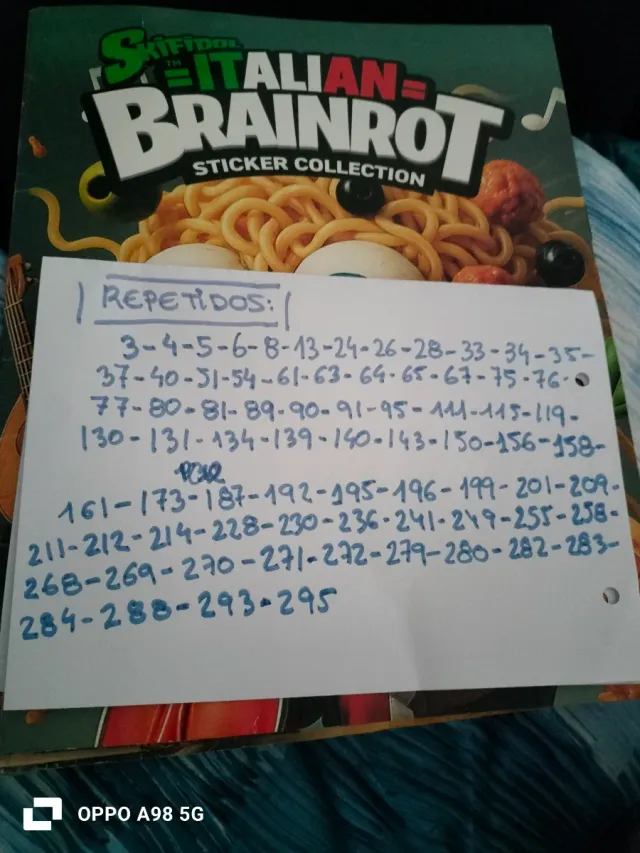 SKIFIDOL
TM
=ITALIAN=
BRAINROT
STICKER COLLECTION
REPETIDOS:
3-4-5-6-8-13-24-26-28-33-34-35-
37-40-51-54-61-63-64-65-67-75-76-
77-80-81-89-90-91-95-111-115-119-
130-131-134-139-140-143-150-156-158-
161-173-187-192-195-196-199-201-209-
211-212-214-228-230-236-241-249-255-258-
268-269-270-271-272-279-280-282-283-
284-288-293-295
OPPO A98 5G